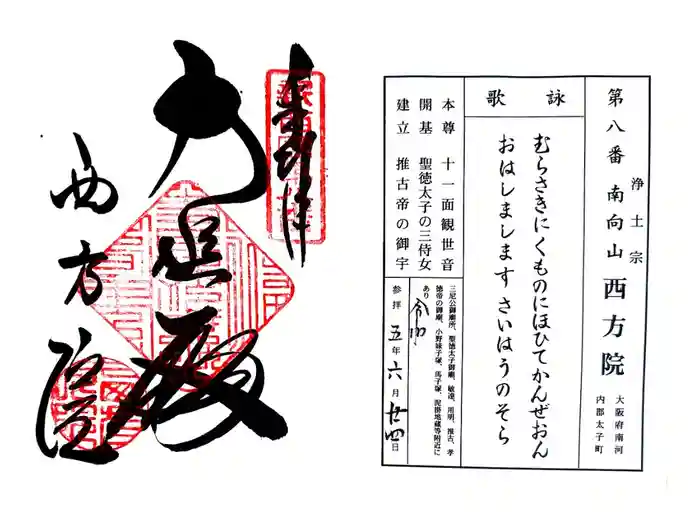 奉拝
大悲殿
西方院
第八番 浄土宗 南向山 西方院
大阪府南河
内郡太子町
詠歌
むらさきにくものにほひてかんぜおん
おはしましますさいはうのそら
本尊 十一面観世音
開基 聖徳太子の三侍女
建立 推古帝の御宇
三尼公御廟所、聖徳太子御廟、敏達、用明、推古、孝
徳帝の御廟、小野妹子塚、馬子塚、泥掛地蔵等附近に
あり
参拝 令和五年六月廿四日